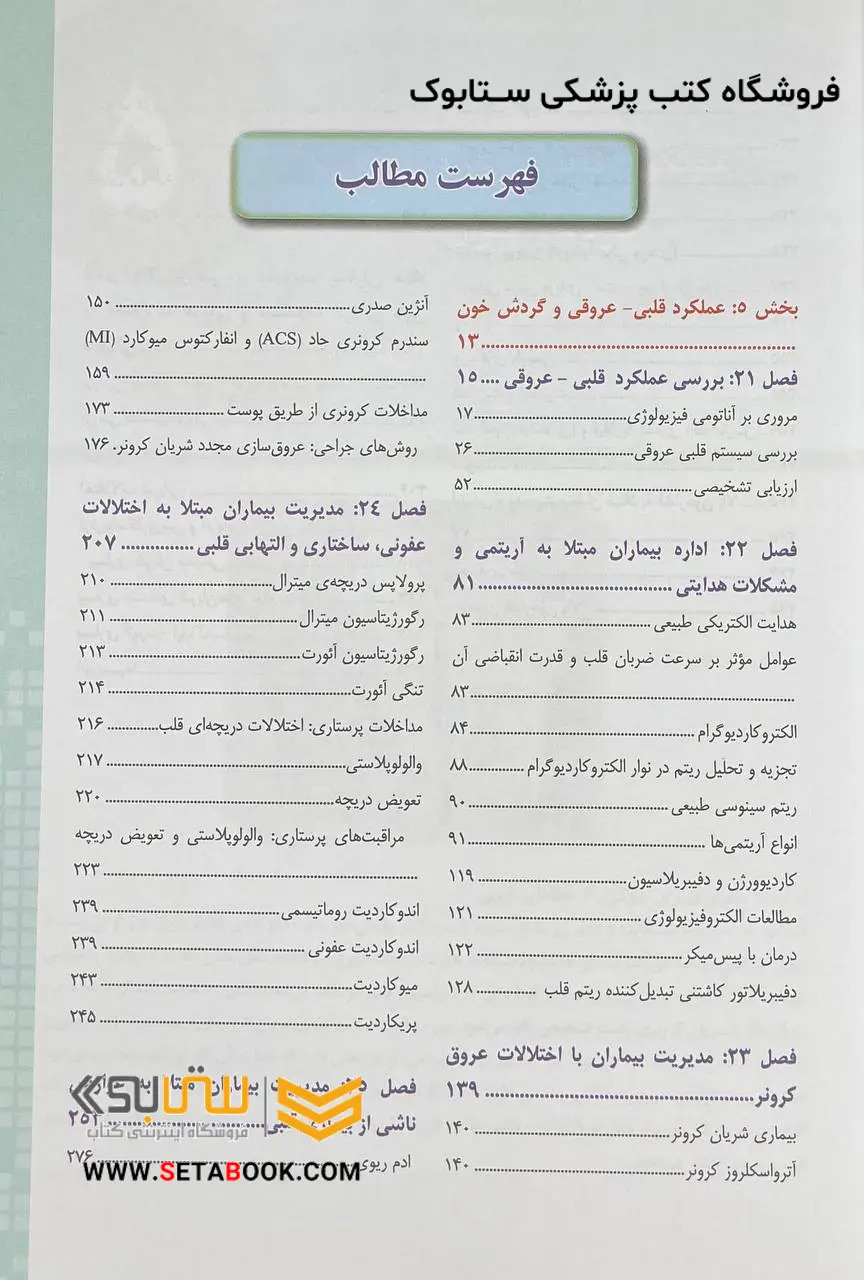 فروشگاه کتب پزشکی ستابوک
فهرست مطالب
بخش ۵: عملکرد قلبی- عروقی و گردش خون
۱۳
فصل ۲۱: بررسی عملکرد قلبی - عروقی .... ۱۵
مروری بر آناتومی فیزیولوژی ۱۷
بررسی سیستم قلبی عروقی ۲۶
ارزیابی تشخیصی ۵۲
فصل ۲۲: اداره بیماران مبتلا به آریتمی و
مشکلات هدایتی ۸۱
هدایت الکتریکی طبیعی ۸۳
عوامل مؤثر بر سرعت ضربان قلب و قدرت انقباضی آن
۸۳
الکتروکاردیوگرام ۸۴
تجزیه و تحلیل ریتم در نوار الکتروکاردیوگرام ۸۸
ریتم سینوسی طبیعی ۹۰
انواع آریتمی‌ها ۹۱
کاردیوورژن و دفیبریلاسیون ۱۱۹
مطالعات الکتروفیزیولوژی ۱۲۱
درمان با پیس‌میکر ۱۲۲
دفیبریلاتور کاشتنی تبدیل‌کننده ریتم قلب ۱۲۸
فصل ۲۳: مدیریت بیماران با اختلالات عروق
کرونر ۱۳۹
بیماری شریان کرونر ۱۴۰
آترواسکلروز کرونر ۱۴۰
آنژین صدری ۱۵۰
سندرم کرونری حاد (ACS) و انفارکتوس میوکارد (MI)
۱۵۹
مداخلات کرونری از طریق پوست ۱۷۳
روش‌های جراحی: عروق‌سازی مجدد شریان کرونر. ۱۷۶
فصل ۲۴: مدیریت بیماران مبتلا به اختلالات
عفونی، ساختاری و التهابی قلبی ۲۰۷
پرولاپس دریچه‌ی میترال ۲۱۰
رگورژیتاسیون میترال ۲۱۱
رگورژیتاسیون آئورت ۲۱۳
تنگی آئورت ۲۱۴
مداخلات پرستاری: اختلالات دریچه‌ای قلب ۲۱۶
والولوپلاستی ۲۱۷
تعویض دریچه ۲۲۰
مراقبت‌های پرستاری: والولوپلاستی و تعویض دریچه
۲۲۳
اندوکاردیت روماتیسمی ۲۳۹
اندوکاردیت عفونی ۲۳۹
میوکاردیت ۲۴۳
پریکاردیت ۲۴۵
فصل مدیریت بیماران مبتلا به
ناشی از
ادم ریوی ۲۷۶
ستابوک
فروشگاه اینترنتی کتاب
WWW.SETABOOK.COM